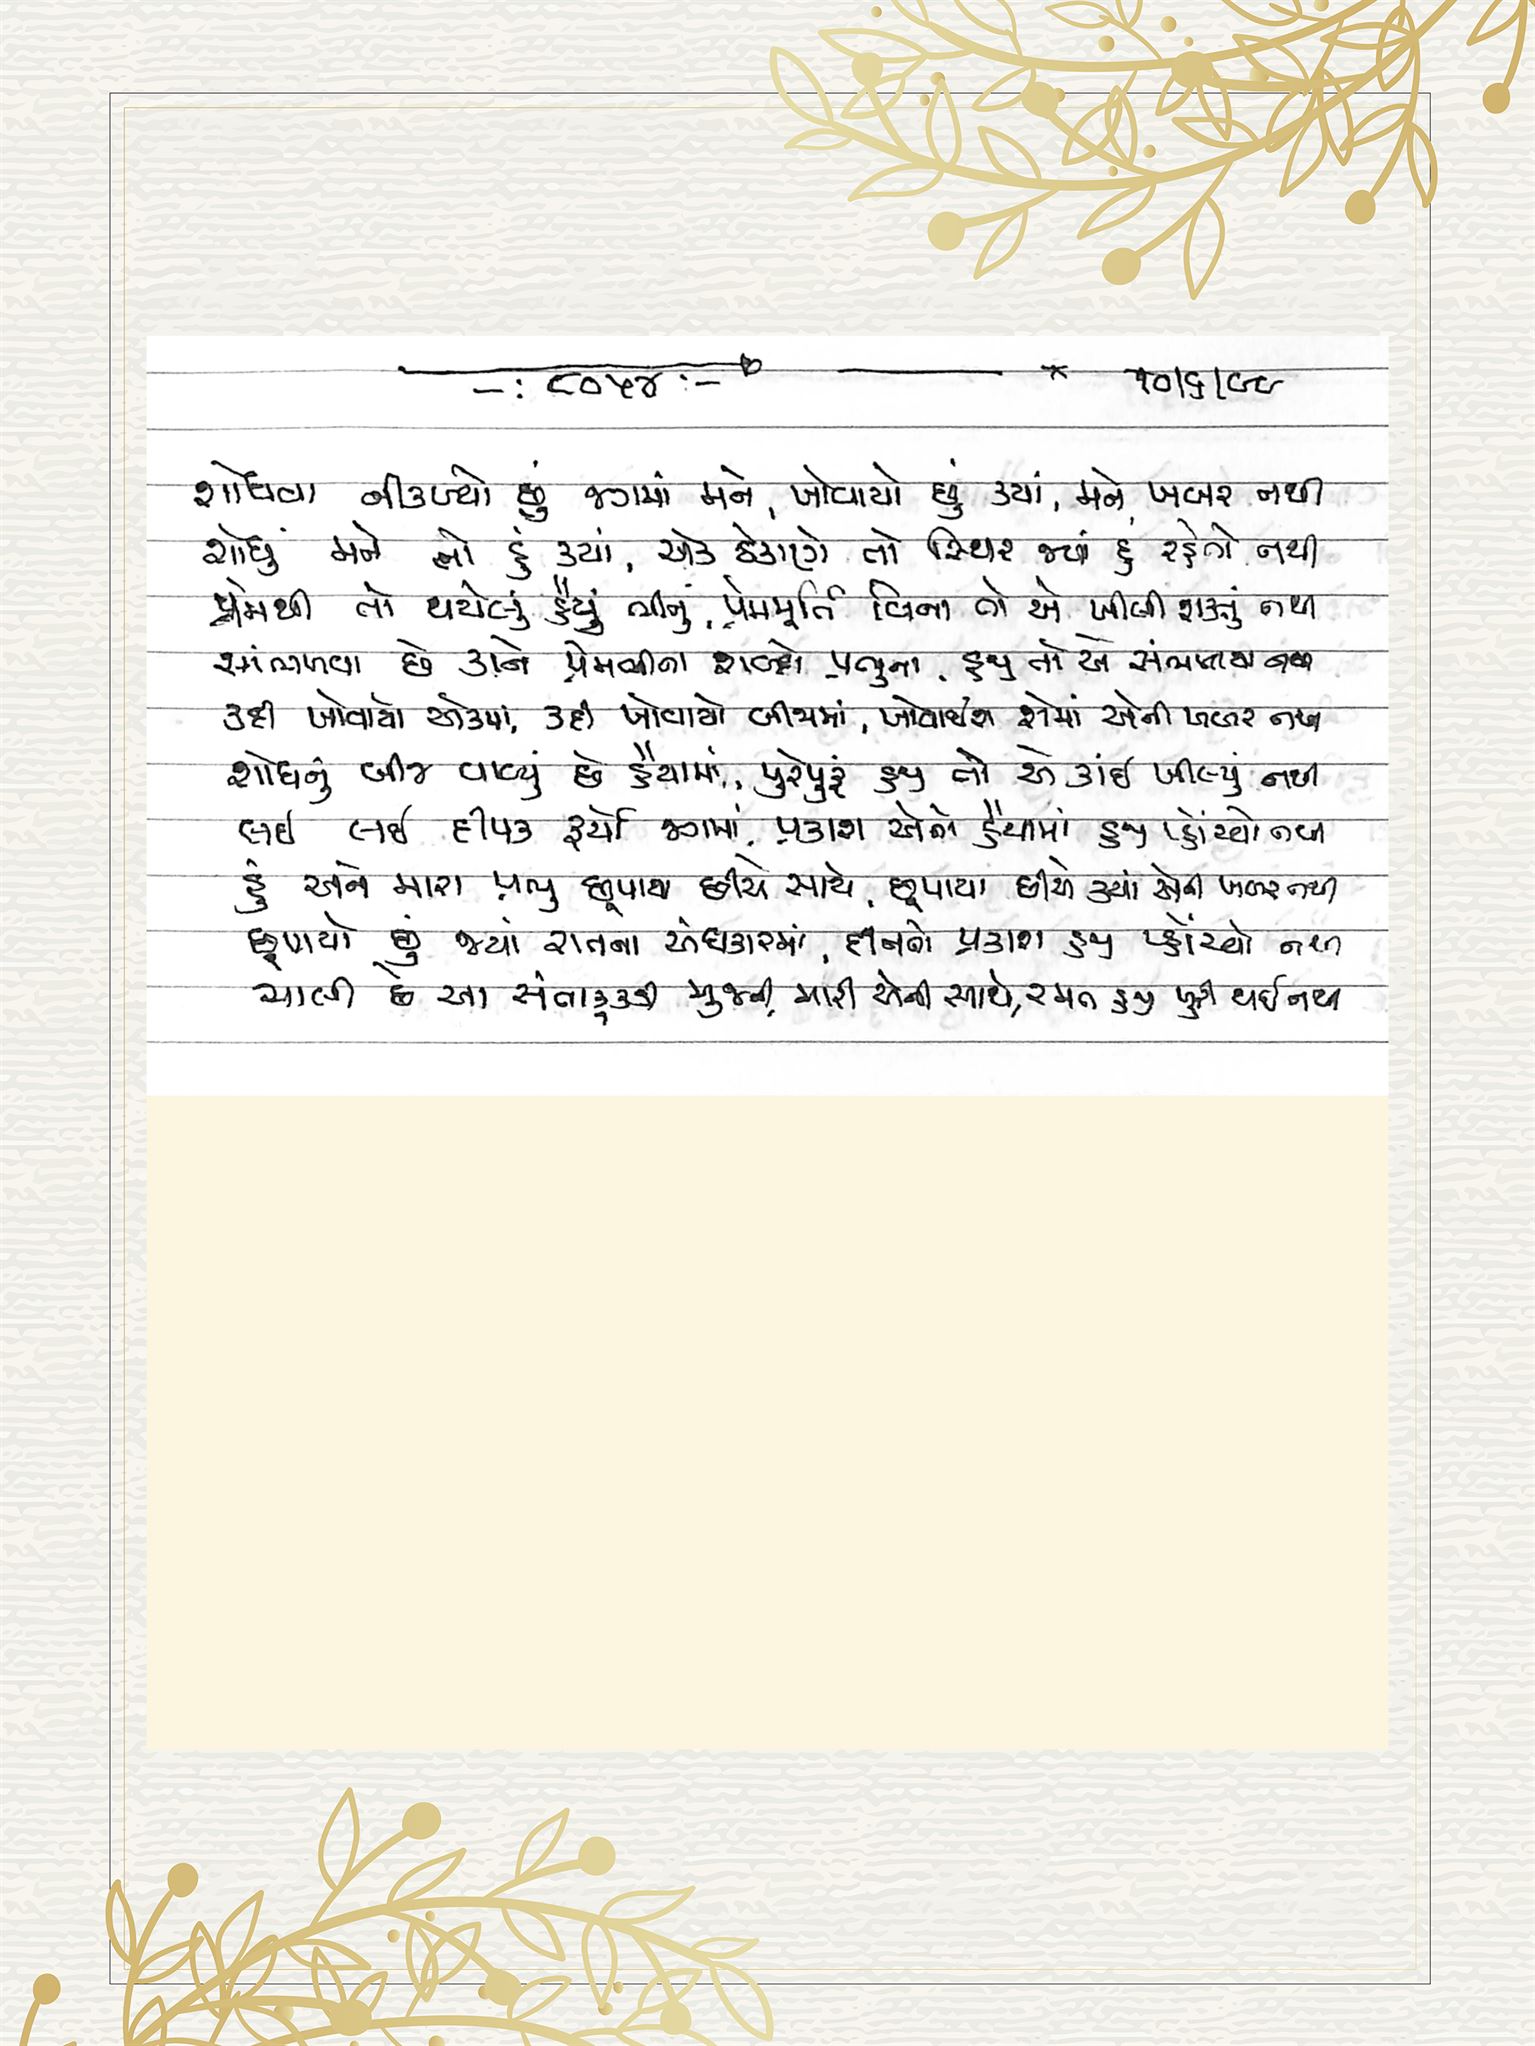 -: ૮૦૫૪ :- * ૧૦/૬/૯૯
શોધવા નીકળ્યો છું જગમાં મને, ખોવાયો છું ક્યાં, મને ખબર નથી
શોધું મને તો હું ક્યાં, એક ઠેકાણે તો સ્થિર જ્યાં હું રહેતો નથી
પ્રેમથી તો થયેલું હૈયું ભીનું, પ્રેમમૂર્તિ વિના તો એ ખીલી શક્તું નથી
સાંભળવા છે કાને પ્રેમભીના શબ્દો પ્રભુના, હજુ તો એ સંભળાયા નથી
કદી ખોવાયો એકમાં, કદી ખોવાયો બીજામાં, ખોવાઈશ શેમાં એની ખબર નથી
શોધનું બીજ વાવ્યું છે હૈયામાં, પુરેપુરૂં હજુ તો એ કાંઈ ખીલ્યું નથી
લઇ લઇ દીપક ફર્યો જગમાં, પ્રકાશ એનો હૈયામાં હજુ પ્હોંચ્યો નથી
હું અને મારા પ્રભુ છૂપાયા છીએ સાથે, છૂપાયા છીએ ક્યાં એની ખબર નથી
છૂપાયો છું જ્યાં રાતના અંધકારમાં, દીનનો પ્રકાશ હજુ પ્હોંચ્યો નથી
ચાલી છે આ સંતાકૂકડી મુજની, મારી એની સાથે, રમત હજુ પુરી થઈ નથી